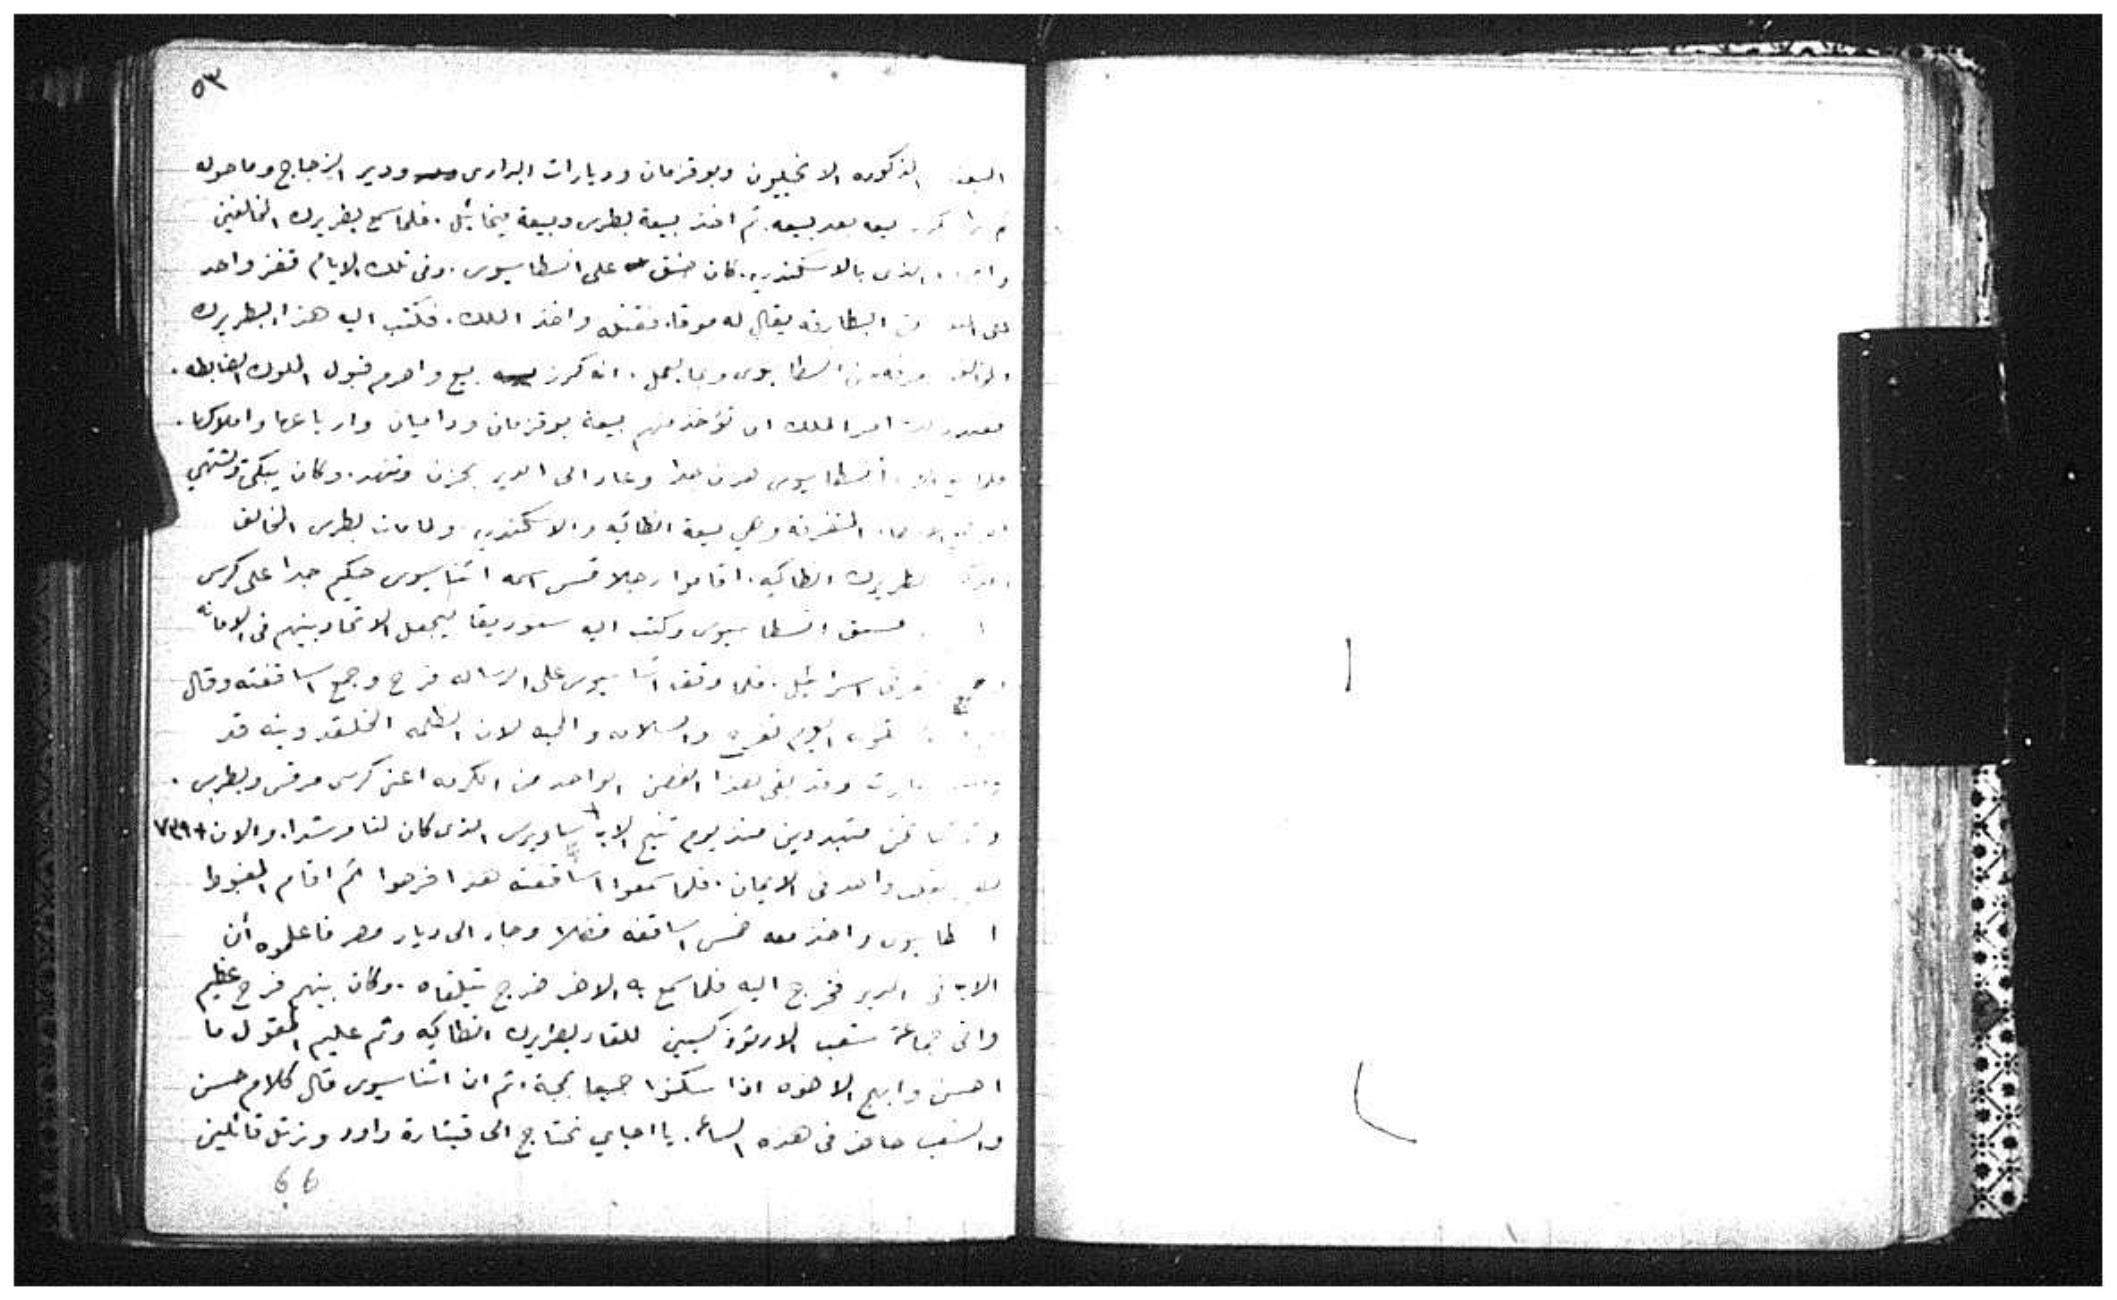 ٥٣
البيعه المذكوره الانجيليون وبوقزمان وديارات البرارى ودير الزجاج وماحوله
كرز بيعه بعد بيعه. ثم اخذ بيعة بطرس وبيعة ميخائيل. فلما سمع بطريرك المخالفين
الذى بالاسكندريه. كان حنق على انسطاسيوس. وفى تلك الايام قفز واحد
على الملك من البطارقه يقال له فوقا. فقتله واخذ الملك. فكتب اليه هذا البطريرك
المخالف انسطاسيوس وبما يعمل. انه كرز بيع واحرم قبول الملوك الضابطه.
امر الملك ان تؤخذ منهم بيعة بوقزمان ودميان وارباعها واملاكها.
انسطاسيوس حزن جدا وعاد الى الدير بحزن وتنهد. وكان يبكى ويشتهى
المتفرقه وهي بيعة انطاكيه والاسكندريه. ولما مات بطرس المخالف
بطريرك انطاكيه. اقاموا رجلا قس اسمه اثناسيوس حكيم جدا على كرسى
انسطاسيوس وكتب اليه سنوديقا ليجعل الاتحاد بينهم فى الامانه
اسرائيل. فلما وقف اثناسيوس على الرساله فرح وجمع اساقفته وقال
اليوم تفرح والسلامه والمحبه لان الظلمه الخلقدونيه قد
وقد بقى هذا الغصن الواحد من الكرمه اعنى كرسى مرقس وبطرس.
نحن متبددين منذ يوم تنيح الاب + ساويرس الذى كان لنا مرشدا. والان + ٧٣٩
بقلب واحد فى الايمان. فلما سمعوا اساقفته هذا فرحوا ثم اقام المغبوط
واخذ معه خمس اساقفه فضلا وجاء الى ديار مصر فاعلموه أن
الاب فى الدير فخرج اليه فلما سمع به الاخر خرج يتلقاه. وكان بينهم فرح عظيم
واتى جماعة شعب الارتوذكسيين للقاء بطريرك انطاكيه وتم عليهم المقول ما
احسن وابهج الاخوه اذا سكنوا جميعا بمحبة. ثم ان اثناسيوس قال كلام حسن
والشعب حاضر فى هذه الساعه. يا احباي نحتاج الى قيتارة داود ونرتل قائلين
66